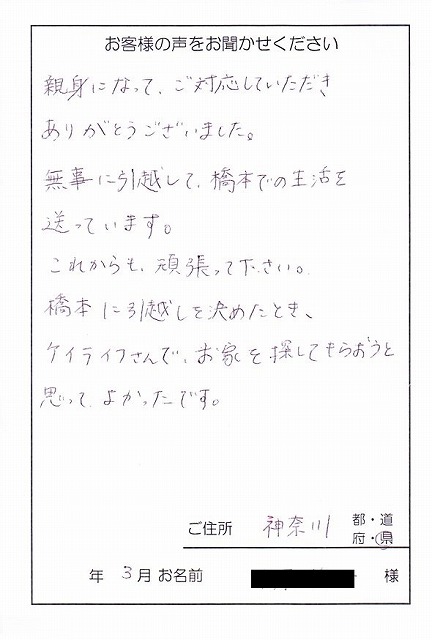 お客様の声をお聞かせください
親身になって、ご対応していただき
ありがとうございました。
無事に引越して、橋本での生活を
送っています。
これからも、頑張って下さい。
橋本に引越しを決めたとき、
ケイライフさんで、お家を探してもらおうと
思って、よかったです。
ご住所 神奈川 都・道
府・県
年 3月 お名前 様